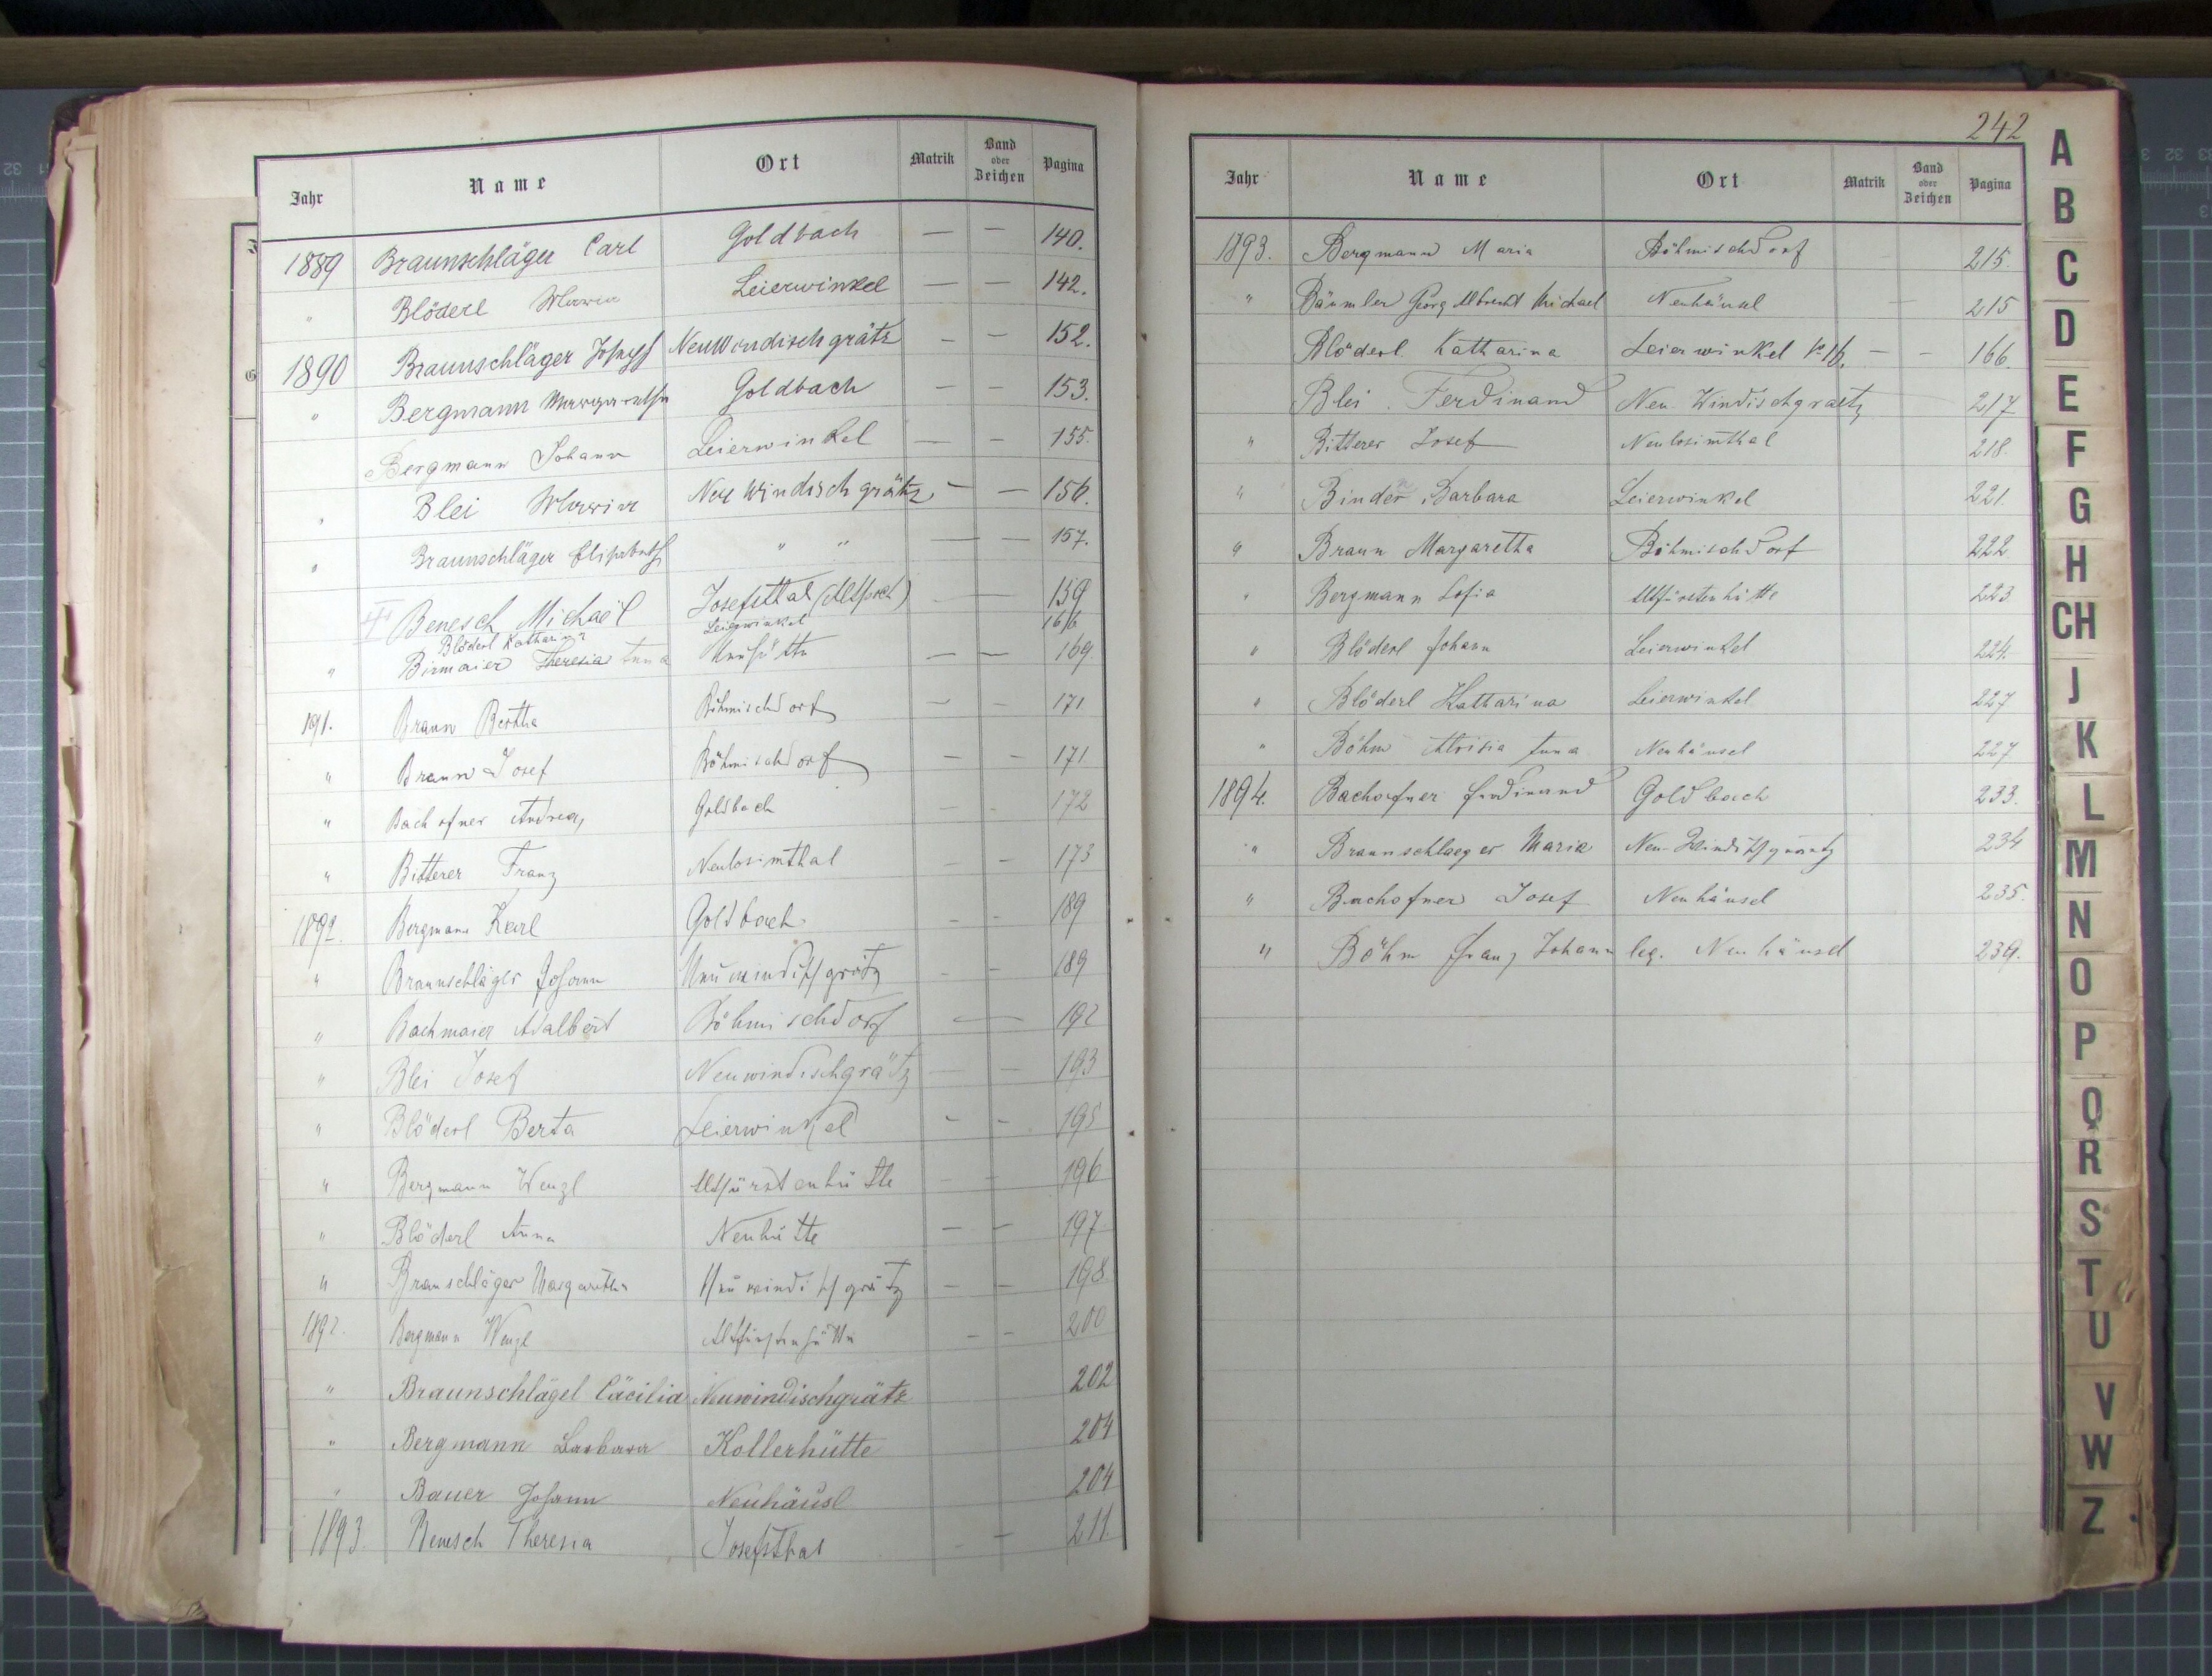 Jahr Name Ort Matrik Band oder Zeichen Pagina
1889 Braunschläger Carl Goldbach — — 140.
" Blöderl Maria Leierwinkel — — 142.
1890 Braunschläger Joseph Neuwindischgrätz — — 152.
" Bergmann Margaretha Goldbach — — 153.
Bergmann Johann Leierwinkel — — 155.
" Blei Maria Neu Windischgrätz — — 156.
" Braunschläger Elisabeth " " — — 157.
Benesch Michael Josefsthal — 159
Blöderl Katharina Leierwinkel 166
" Birmaier Theresia Anna Neuhütte — — 169.
1891. Braun Bertha Böhmischdorf — — 171
" Braun Josef Böhmischdorf — — 171
" Bachofner Andreas Goldbach — — 172
" Bitterer Franz Neulosimthal — — 173
1892. Bergmann Karl Goldbach — — 189
" Braunschläger Johann Neuwindischgrätz — — 189
" Bachmaier Adalbert Böhmischdorf — — 192
" Blei Josef Neuwindischgrätz — — 193
" Blöderl Berta Leierwinkel — — 195
" Bergmann Wenzl Altfürstenhütte — — 196
" Blöderl Anna Neuhütte — — 197
" Braunschläger Margaretha Neuwindischgrätz — — 198
1892. Bergmann Wenzl Altfürstenhütte — — 200
" Braunschlägel Cäcilia Neuwindischgrätz 202
" Bergmann Barbara Kollerhütte 204
" Bauer Johann Neuhäusl 204
1893. Benesch Theresia Josefsthal - — 211.
242
Jahr Name Ort Matrik Band oder Zeichen Pagina
1893. Bergmann Maria Böhmischdorf 215.
" Bäumler Georg Albrecht Michael Neuhäusel — 215
Blöderl Katharina Leierwinkel № 16. — — 166.
Blei Ferdinand Neu Windischgraetz 217
" Bitterer Josef Neulosimthal 218.
" Binder Barbara Leierwinkel 221.
" Braun Margaretha Böhmischdorf 222.
" Bergmann Sofia Altfürstenhütte 223.
" Blöderl Johann Leierwinkel 224.
" Blöderl Katharina Leierwinkel 227
" Böhm Aloisia Anna Neuhäusel 227
1894. Bachofner Ferdinand Goldbach 233.
" Braunschlaeger Maria Neu-Windischgraetz 234
" Bachofner Josef Neuhäusel 235.
" Böhm Franz Johann leg. Neuhäusel 239.
A
B
C
D
E
F
G
H
CH
J
K
L
M
N
O
P
Q
R
S
T
U
V
W
Z